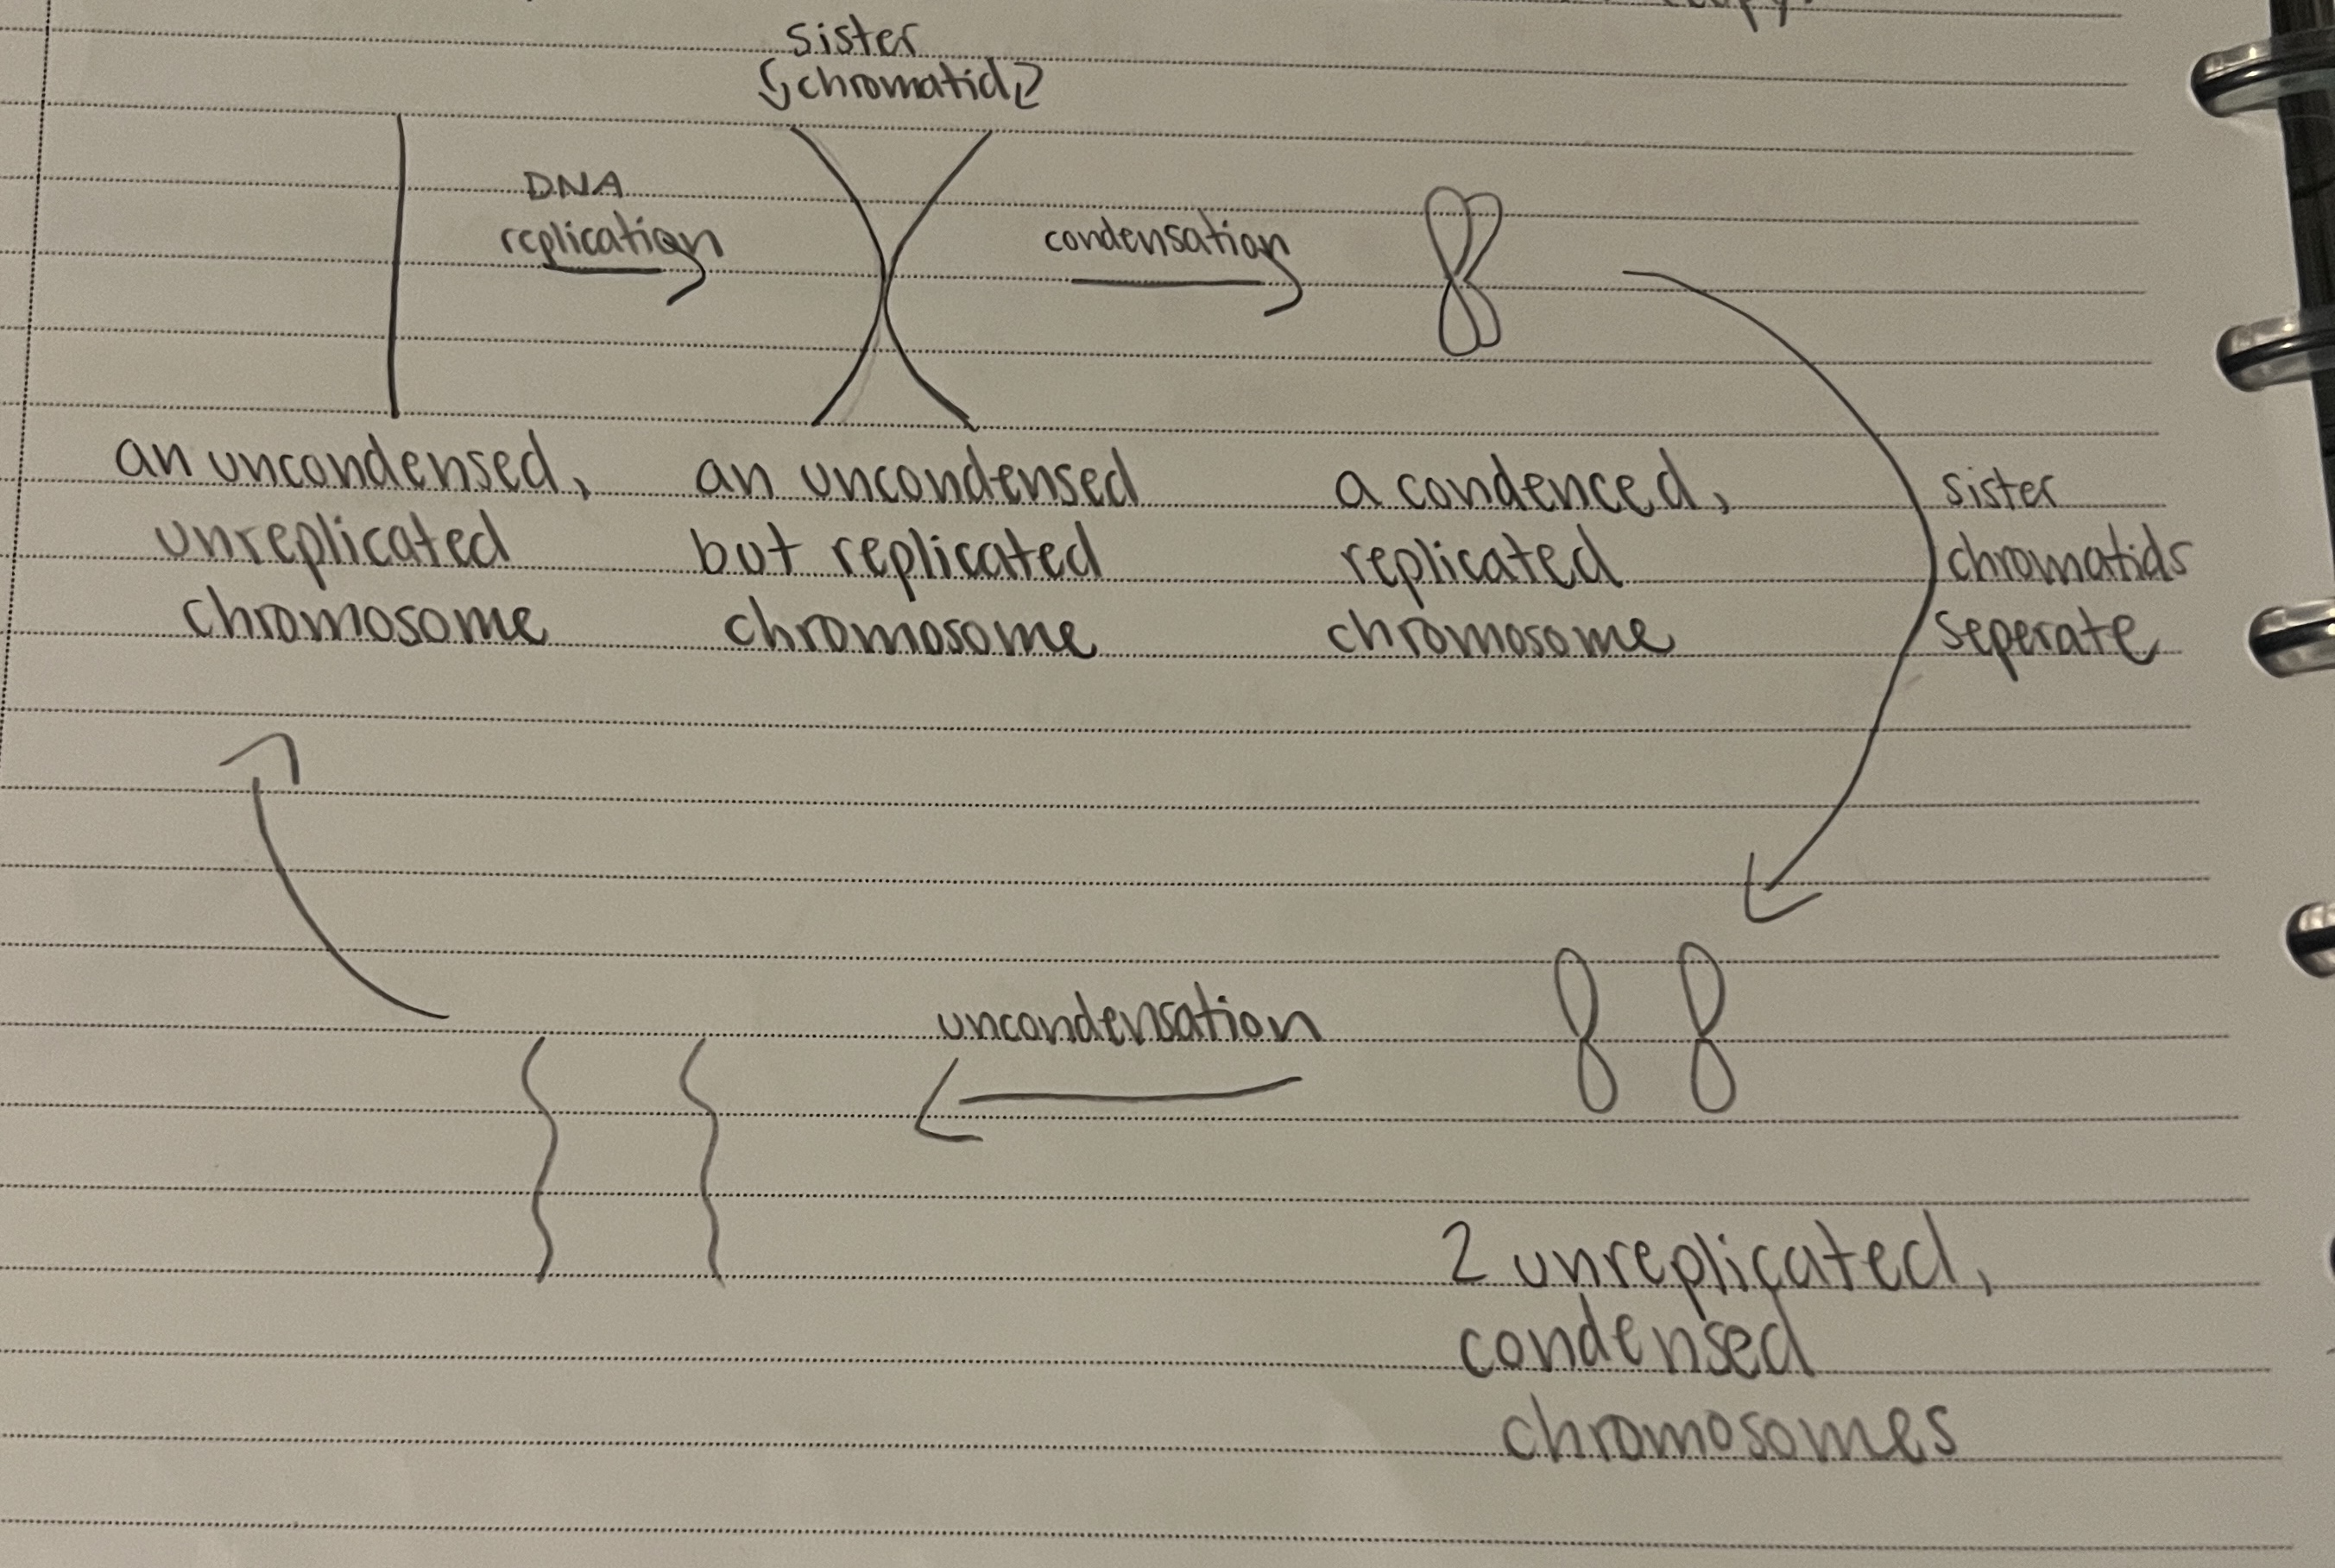 copy.
sister
chromatid
DNA
replication
condensation
an uncondensed,
unreplicated
chromosome
an uncondensed
but replicated
chromosome
a condenced,
replicated
chromosome
sister
chromatids
seperate
uncondensation
2 unreplicated,
condensed
chromosomes